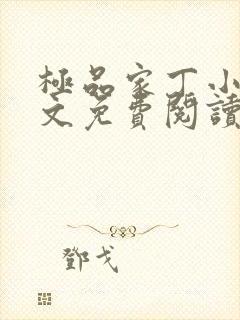 極品家丁小
文免費閱讀
鄧戈